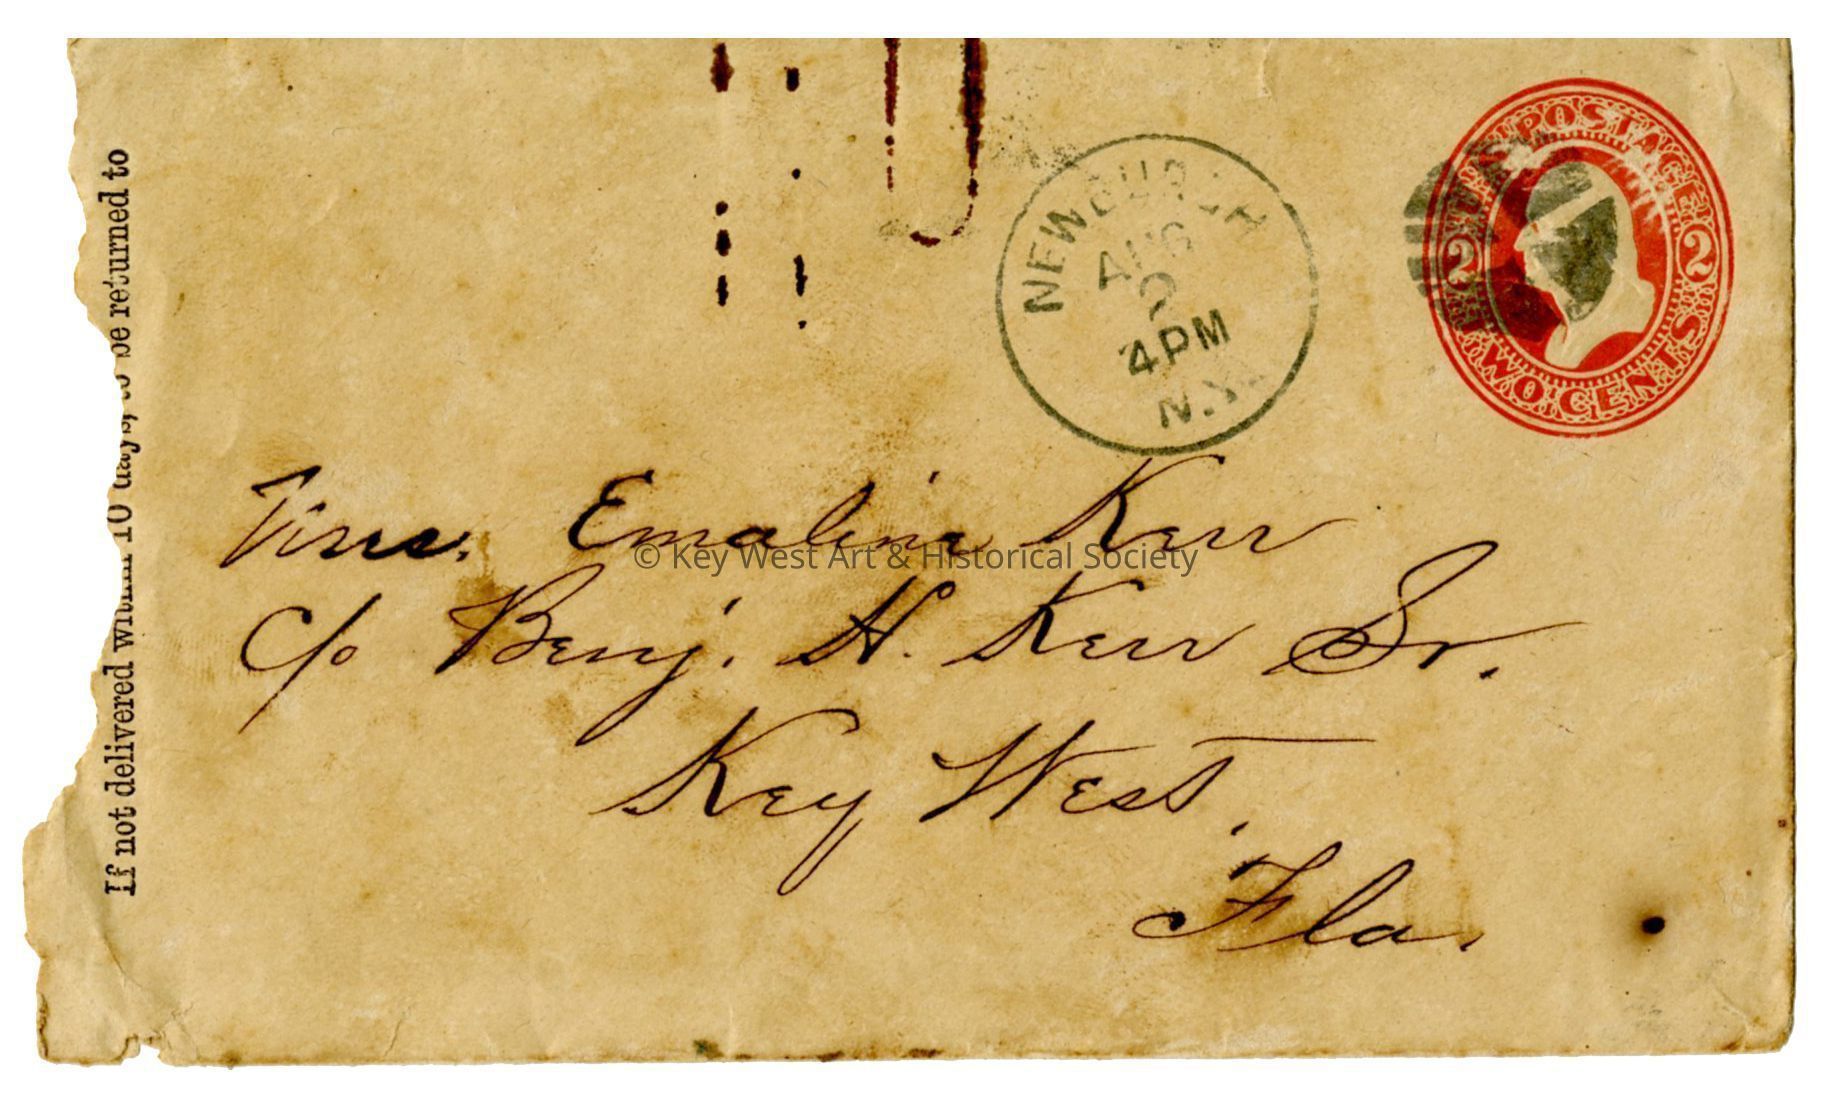 If not delivered within 10 days, to be returned to
NEWBURGH
AUG
2
4 PM
N.Y.
POSTAGE
2 2
TWO CENTS
Mrs. Emaline Kerr
© Key West Art & Historical Society
c/o Benj. H. Kerr Sr.
Key West,
Fla.